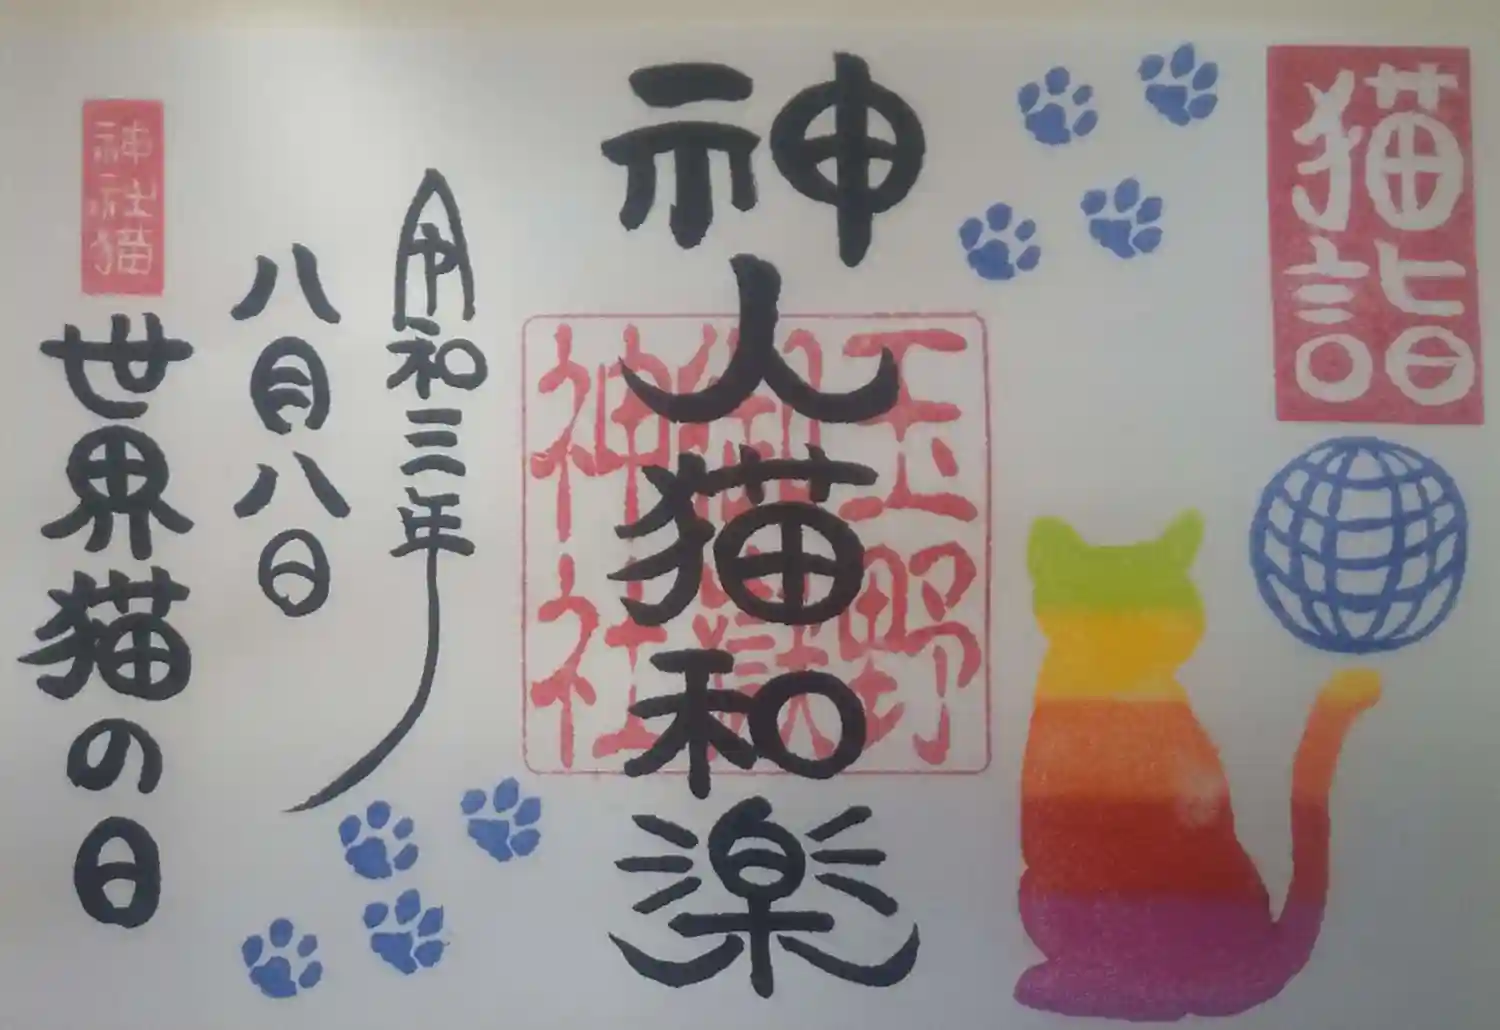 猫詣
神人猫和楽
玉野
御嶽
神社
令和三年
八月八日
神社猫
世界猫の日